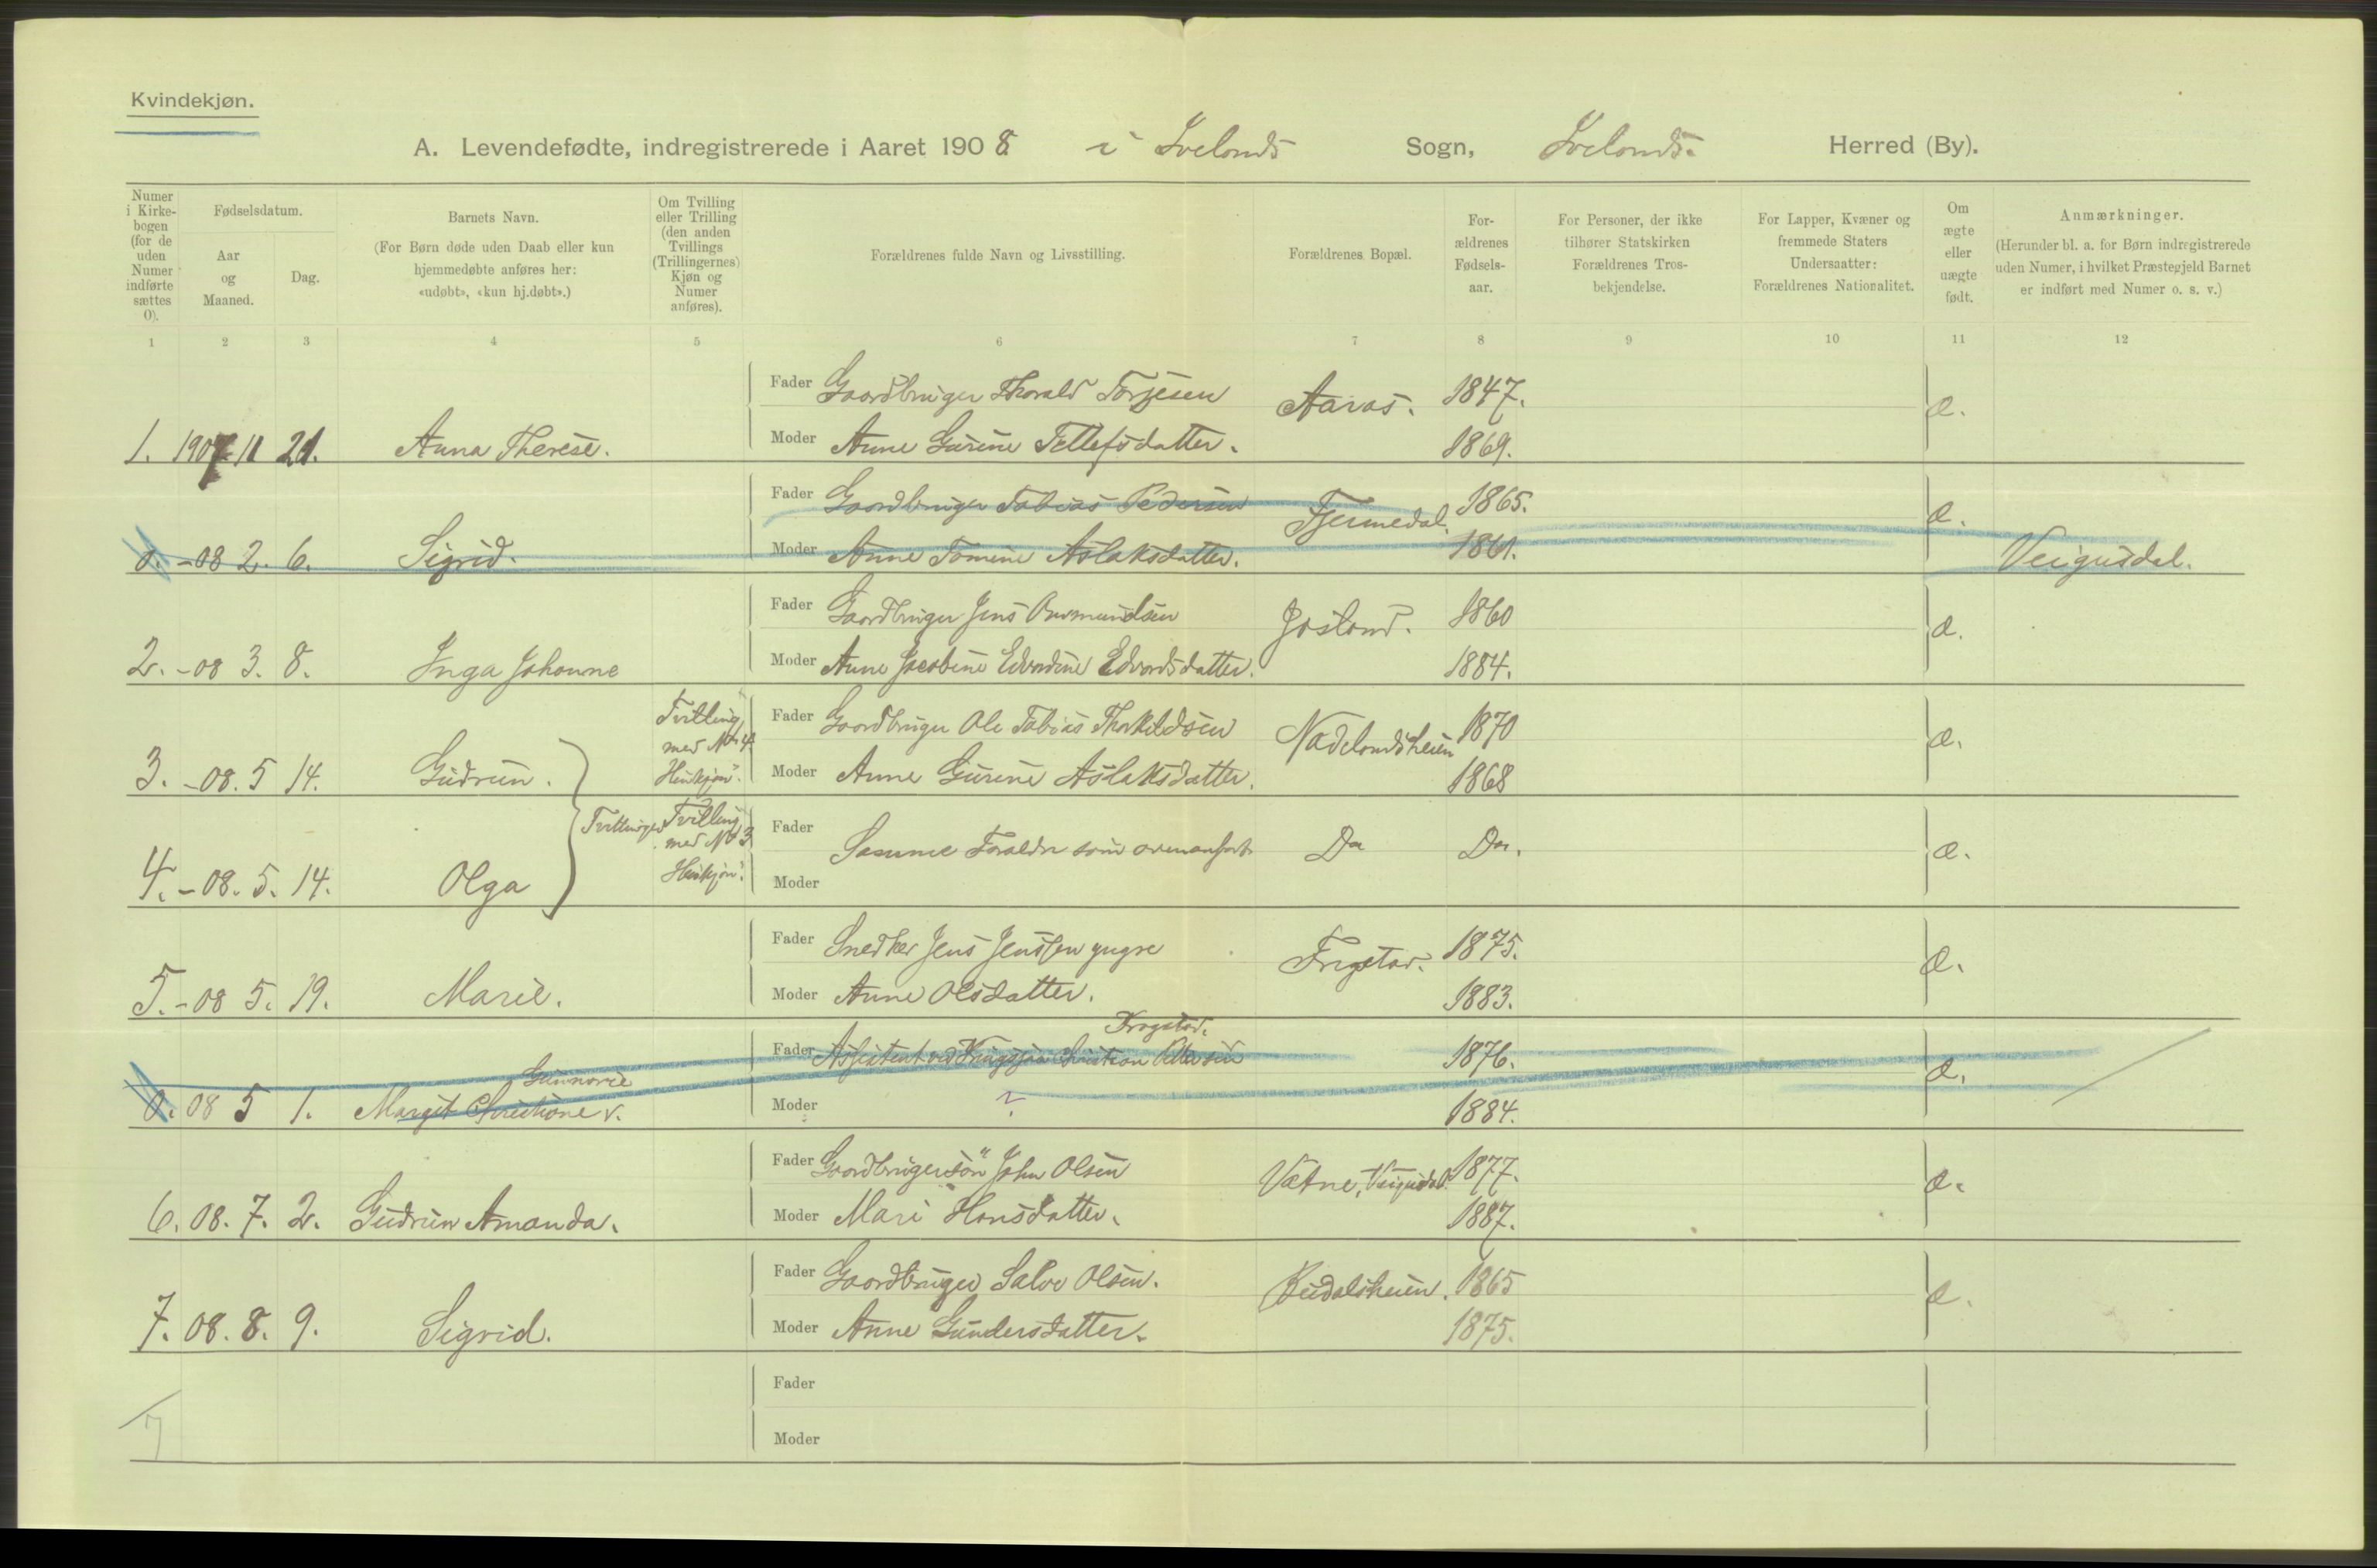 Kvindekjøn.
A. Levendefødte, indregistrerede i Aaret 1908 i Ivelands Sogn, Ivelands Herred (By).
Numer i Kirkebogen (for de uden Numer indførte sættes 0).
Fødselsdatum.
Aar og Maaned.
Dag.
Barnets Navn.
(For Børn døde uden Daab eller kun hjemmedøbte anføres her: «udøbt», «kun hj.døbt».)
Om Tvilling eller Trilling (den anden Tvillings (Trillingernes) Kjøn og Numer anføres).
Forældrenes fulde Navn og Livsstilling.
Forældrenes Bopæl.
Forældrenes Fødselsaar.
For Personer, der ikke tilhører Statskirken Forældrenes Trosbekjendelse.
For Lapper, Kvæner og fremmede Staters Undersaatter: Forældrenes Nationalitet.
Om ægte eller uægte født.
Anmærkninger.
(Herunder bl. a. for Børn indregistrerede uden Numer, i hvilket Præstegjeld Barnet er indført med Numer o. s. v.)
1 2 3 4 5 6 7 8 9 10 11 12
Fader Gaardbruger Thorald Torjesen Aaras. 1847. æ.
1. 1907 11 21. Anna Therese. Moder Anne Gurine Tellefsdatter. 1869.
Fader Gaardbruger Tobias Pedersen Tjermedal. 1865. æ.
0. -08 2. 6. Sigrid. Moder Anne Tomine Aslaksdatter. 1861. Veigusdal.
Fader Gaardbruger Jens Josland. 1860 æ.
2. -08 3. 8. Inga Johanne Moder Anne Jacobine Edvardine Edvardsdatter. 1884.
Tvilling med No 4. Hunkjøn". Fader Gaardbruger Ole Tobias Thorkildsen Nadelandsheien 1870 æ.
3. -08. 5 14. Gudrun. Moder Anne Gurine Aslaksdatter. 1868
Tvillinger Tvilling med No 3 Hunkjøn". Fader Samme Forældre som ovenanført Do Do. æ.
4. -08. 5. 14. Olga Moder
Fader Snedker Jens Jenssen yngre Frigstad. 1875. æ.
5. -08 5. 19. Marie. Moder Anne Olsdatter. 1883.
Frogstad.
Fader Assistent ved 1876. æ.
0. 08 5 1. Margit Christiane Moder ? 1884.
Fader Gaardbrugersøn" John Olsen Vatne, Veigusdal. 1877. æ.
6. 08. 7. 2. Gudrun Amanda. Moder Mari Hansdatter. 1887.
Fader Gaardbruger Salve Olsen. 1865 æ.
7. 08. 8. 9. Sigrid. Moder Anne Gundersdatter. 1875.
Fader
7
Moder